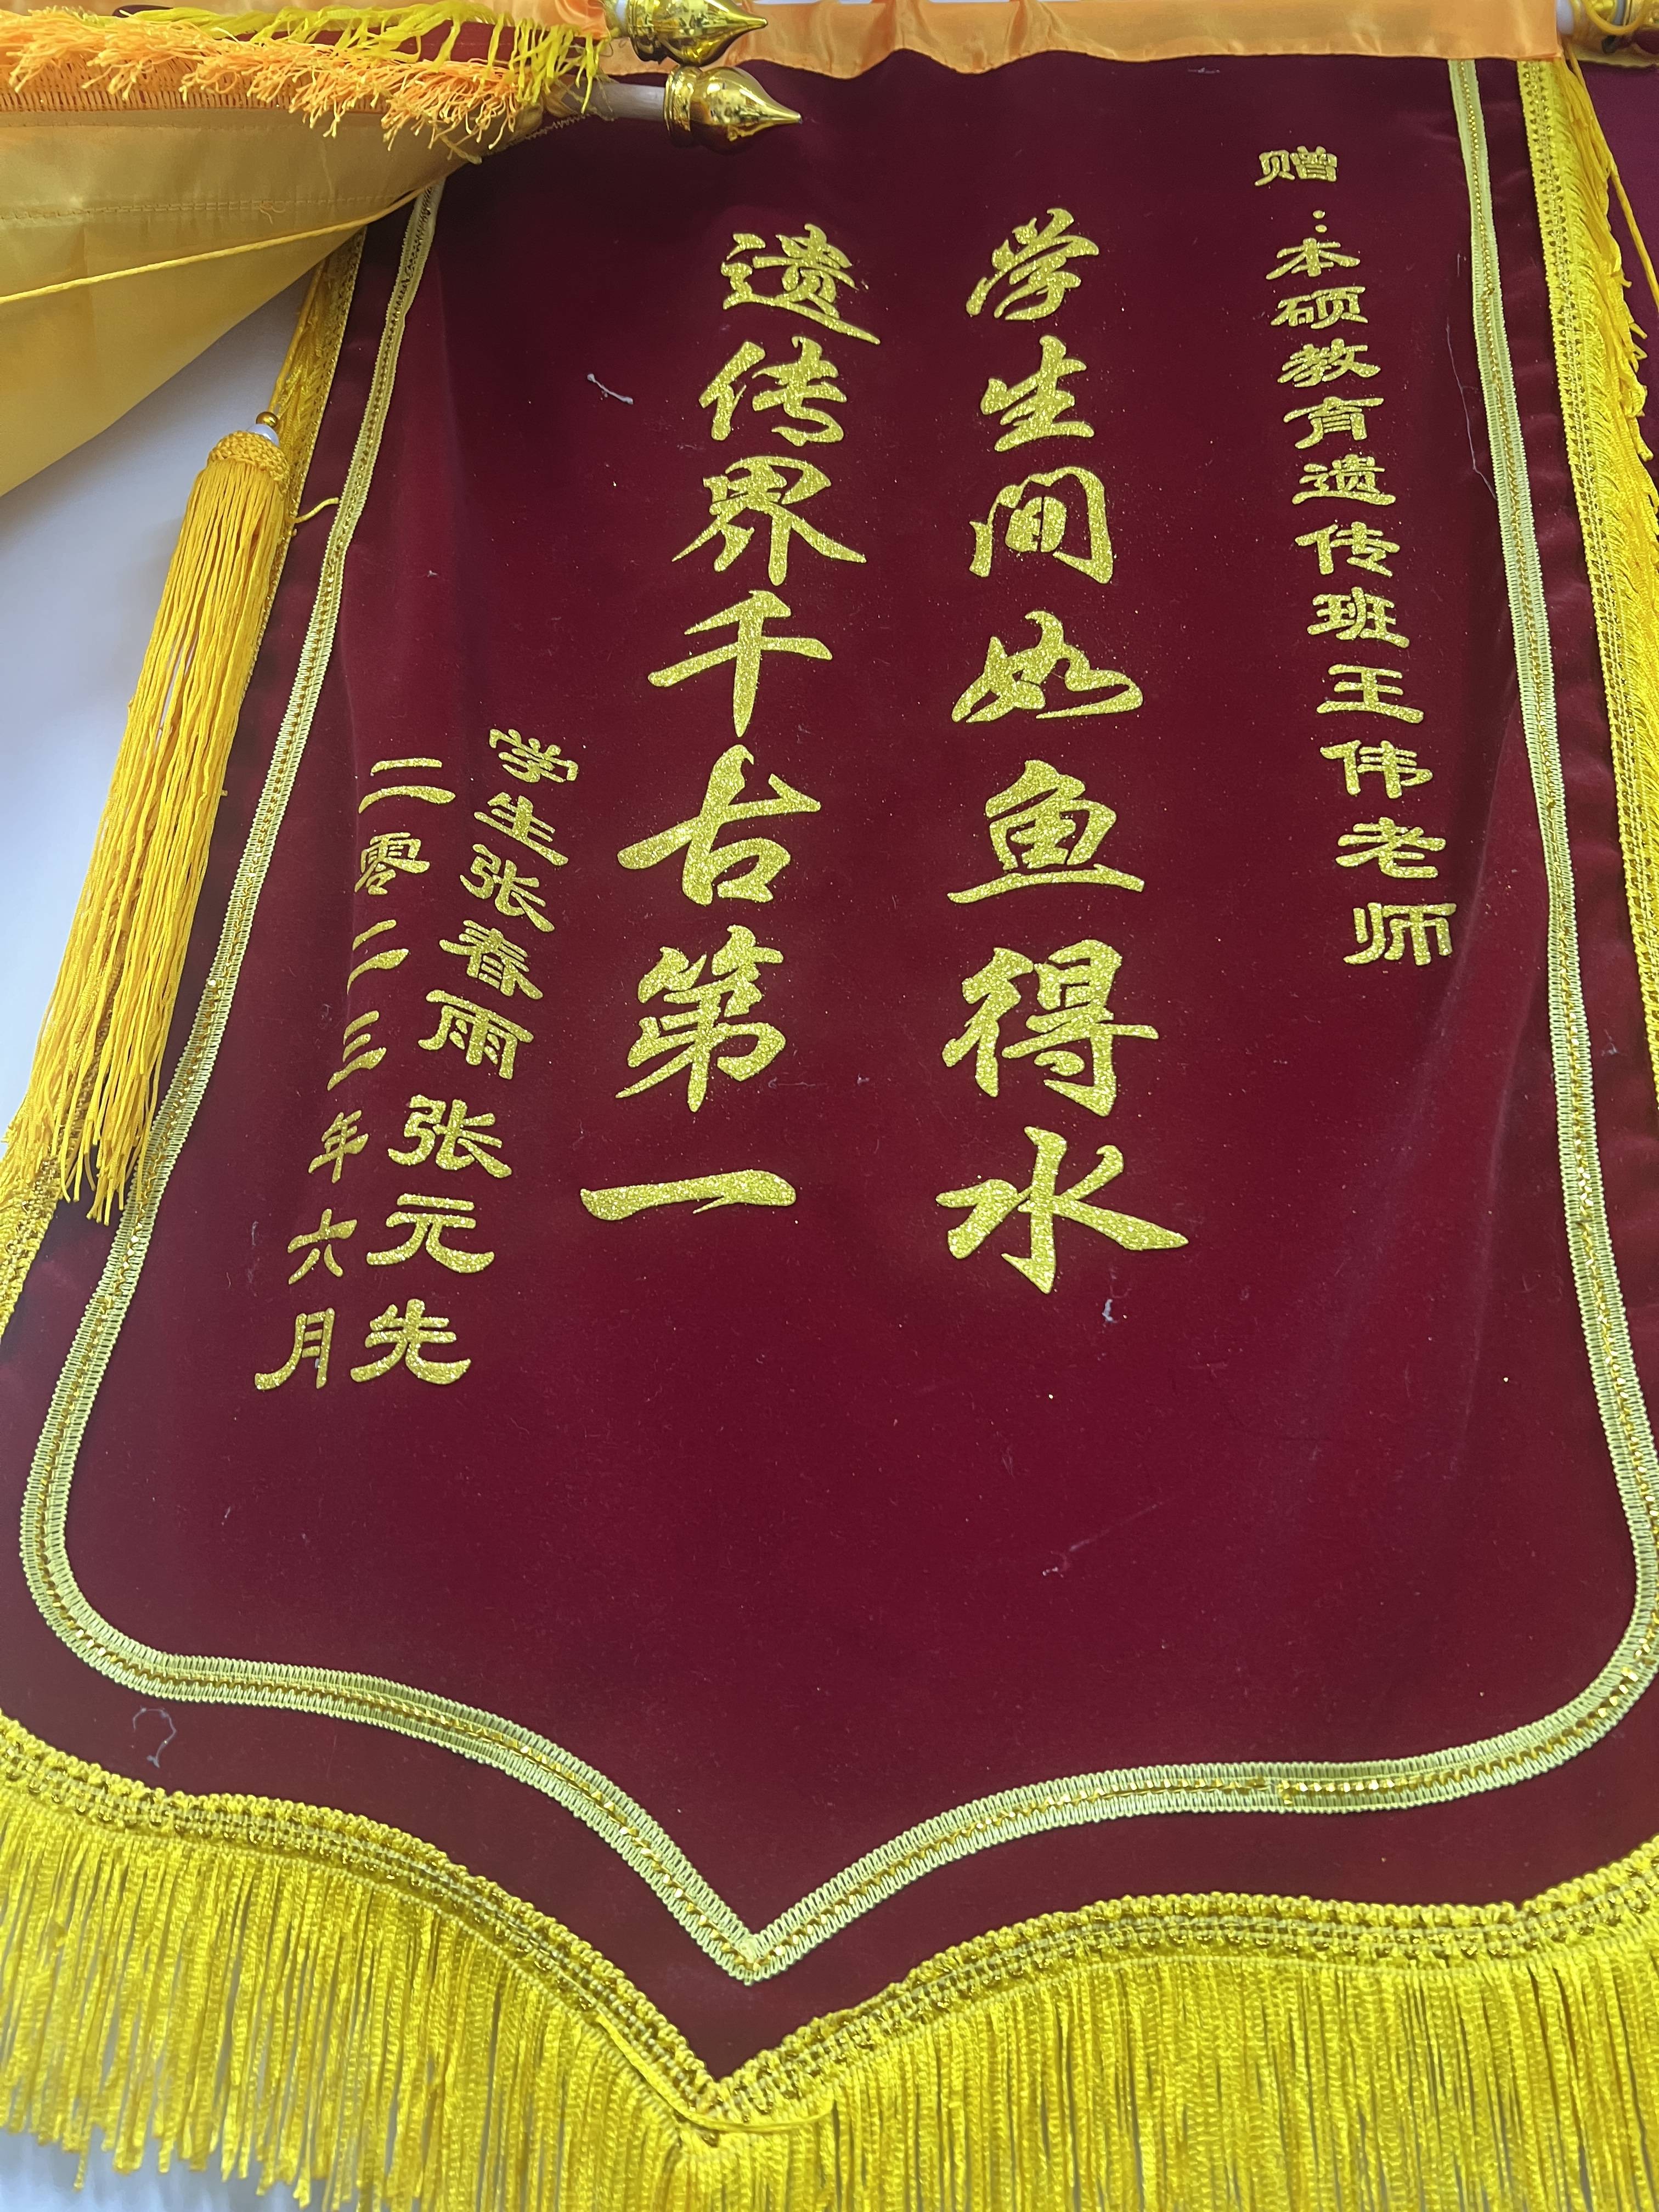 赠：本硕教育遗传班王伟老师
学生间如鱼得水
遗传界千古第一
学生张春雨张元先
二零二三年六月